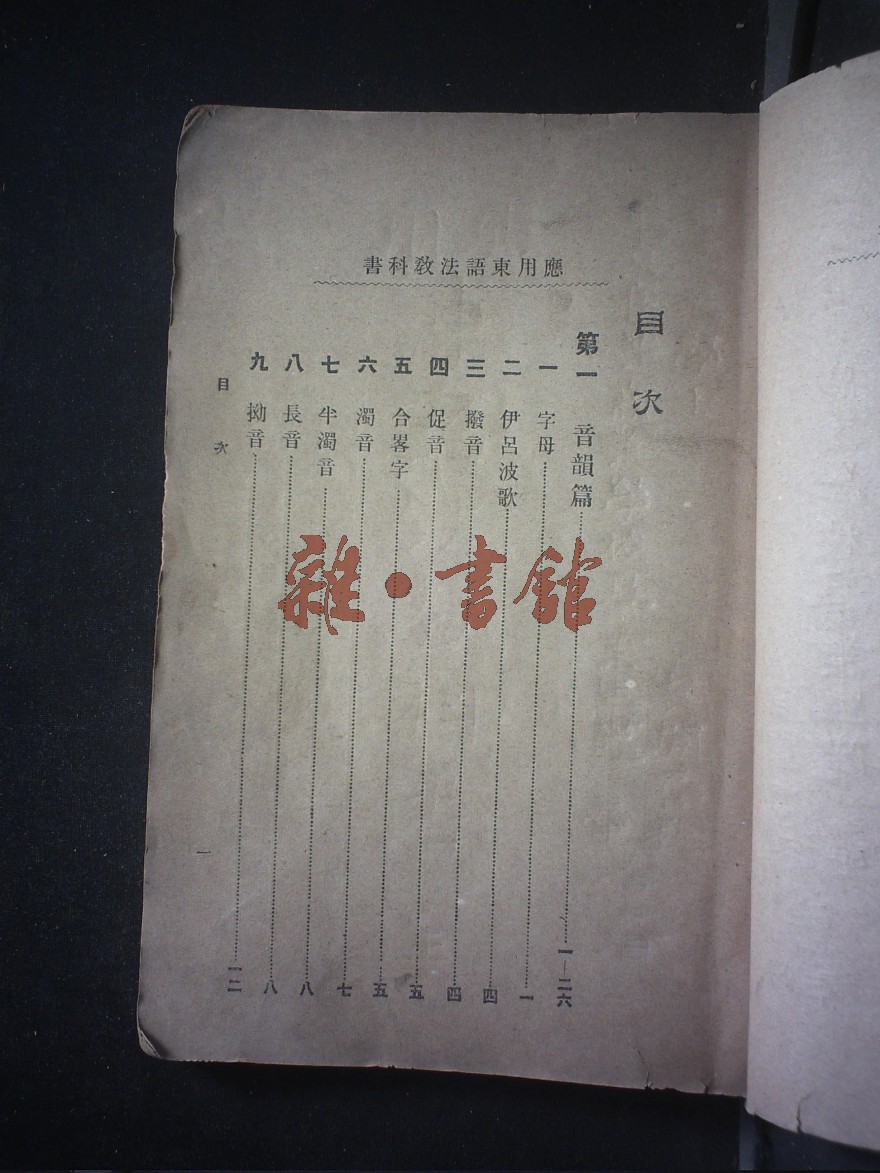 應用東語法敎科書
目次
第一 音韻篇 一—二六
一 字母 一
二 伊呂波歌 四
三 撥音 四
四 促音 五
五 合畧字 五
六 濁音 七
七 半濁音 八
八 長音 八
九 拗音 一二
目次 一
雜·書館